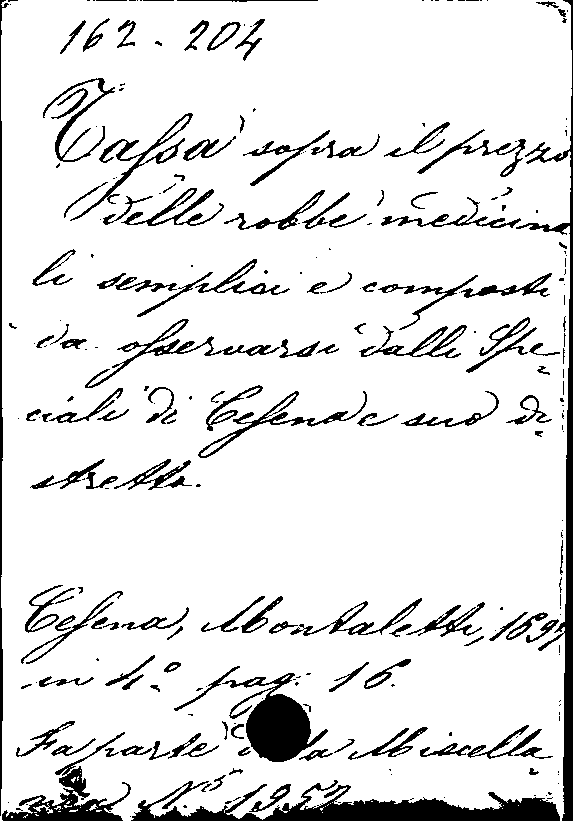 162 - 204
Tassa sopra il prezzo
delle robbe medicina
li semplici e composti
da osservarsi dalli Spe-
ciali di Cesena e suo di-
stretto.
Cesena, Montaletti,
in 4.° pag. 16.
Fa parte Miscella-
nea N.° 1952